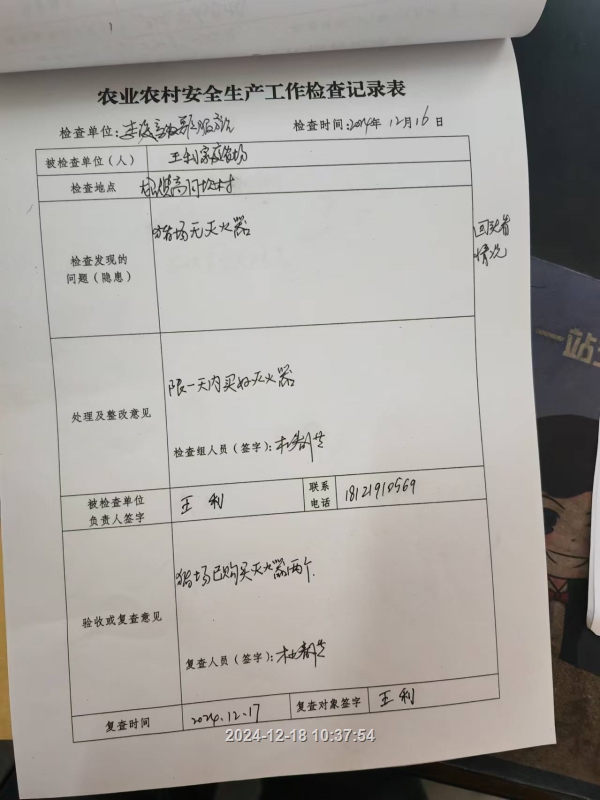 农业农村安全生产工作检查记录表
检查单位：
检查时间：2024年 12月 16日
被检查单位（人） 王利家庭农场
检查地点
检查发现的
问题（隐患）
猪场无灭火器
回头看
情况
处理及整改意见
限一天内买好灭火器
检查组人员（签字）：
被检查单位
负责人签字
王利
联系
电话
18121910569
验收或复查意见
猪场已购买灭火器两个.
复查人员（签字）：
复查时间 2024.12.17 复查对象签字 王利
2024-12-18 10:37:54
一站